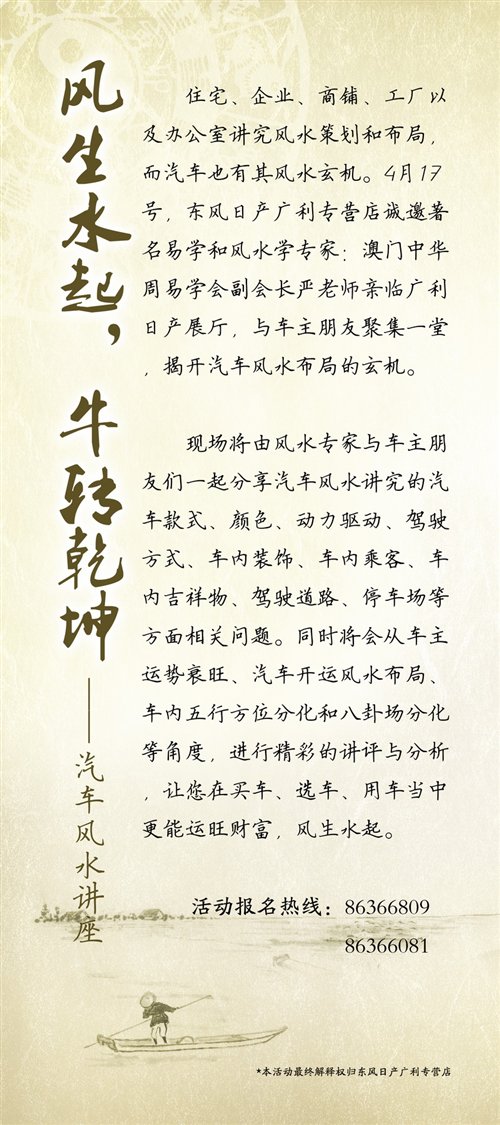 风生水起，牛转乾坤
——汽车风水讲座
住宅、企业、商铺、工厂以
及办公室讲究风水策划和布局，
而汽车也有其风水玄机。4月17
号，东风日产广利专营店诚邀著
名易学和风水学专家：澳门中华
周易学会副会长严老师亲临广利
日产展厅，与车主朋友聚集一堂
，揭开汽车风水布局的玄机。
现场将由风水专家与车主朋
友们一起分享汽车风水讲究的汽
车款式、颜色、动力驱动、驾驶
方式、车内装饰、车内乘客、车
内吉祥物、驾驶道路、停车场等
方面相关问题。同时将会从车主
运势衰旺、汽车开运风水布局、
车内五行方位分化和八卦场分化
等角度，进行精彩的讲评与分析
，让您在买车、选车、用车当中
更能运旺财富，风生水起。
活动报名热线：86366809
86366081
*本活动最终解释权归东风日产广利专营店